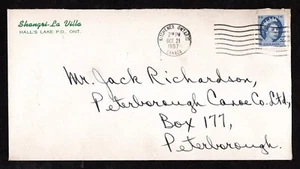 Shangri-La Villa
HALL'S LAKE P.O., ONT.
PM
OCT 21
1957
CANADA
Mr. Jack Richardson,
Peterborough Canoe Co. Ltd,
Box 177,
Peterborough.